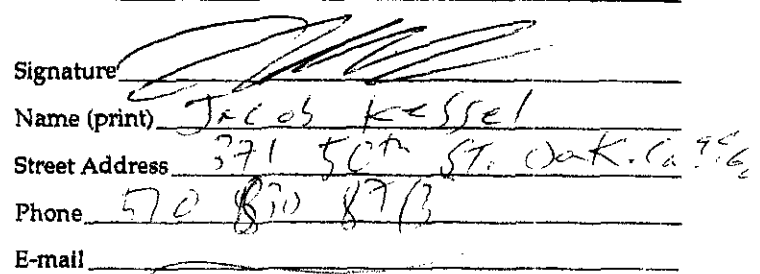 Signature
Name (print) Jacob Kessel
Street Address 371 50th ST. Oak. Ca
Phone 510
E-mail